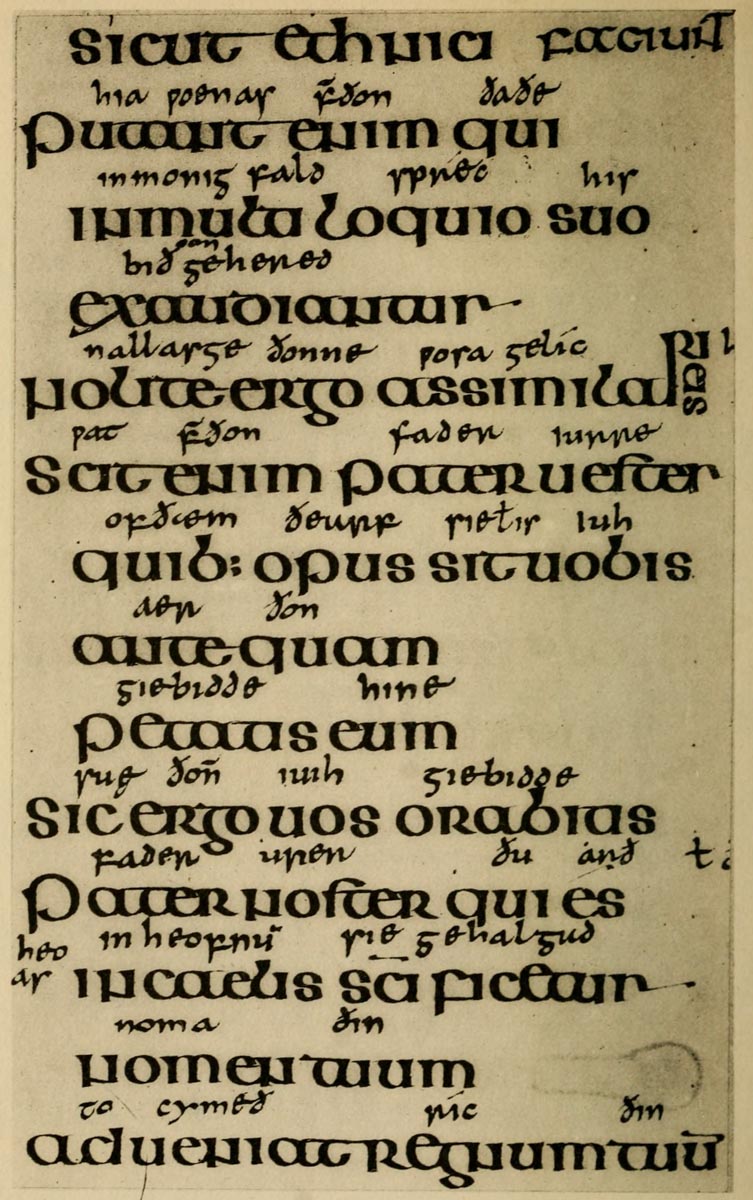 sicut ethnici faciunt
hia poenas fðon ðaðe
putant enim qui
in monig fald sprec his
in multiloquio suo
bið gehered
exaudiantur
nallasge ðonne gelic
nolite ergo assimilari
eis
fðon fader iurre
scit enim pater uester
of ðæm ðeurf sie ł is iuh
quib: opus sit uobis
aer ðon
antequam
giebidde hine
petatis eum
suę ðoñ iuih giebidde
sic ergo uos orabitis
fader urer ðu arð ł
pater noster qui es
heo
as
in heofnū sie gehalgud
in caelis sci ficetur
noma ðin
nomen tuum
to cymeð ric ðin
adueniat regnum tuū